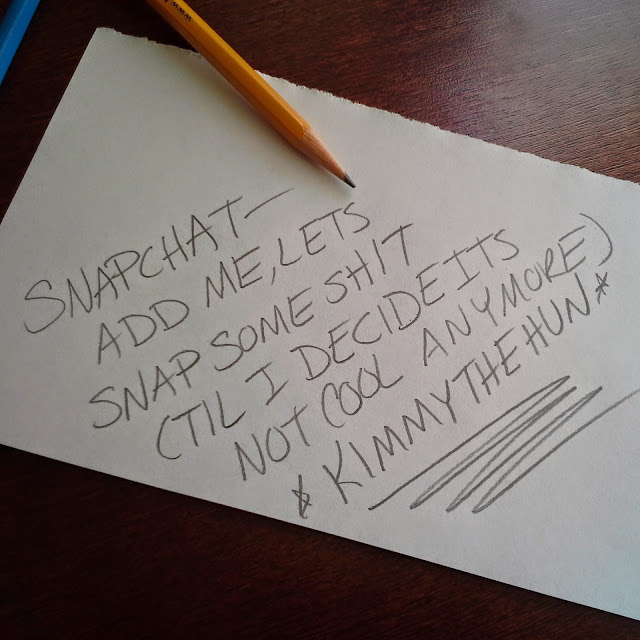 SNAPCHAT—
ADD ME, LETS
SNAP SOME SHIT
(TIL I DECIDE ITS
NOT COOL ANYMORE)
* KIMMYTHEHUN *